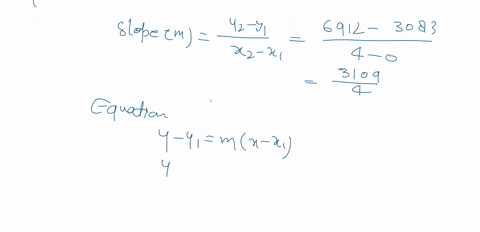 Slope(m) = y₂-y₁ / x₂-x₁ = 6912 - 3083 / 4-0
= 3109 / 4
Equation
y-y₁ = m(x-x₁)
y